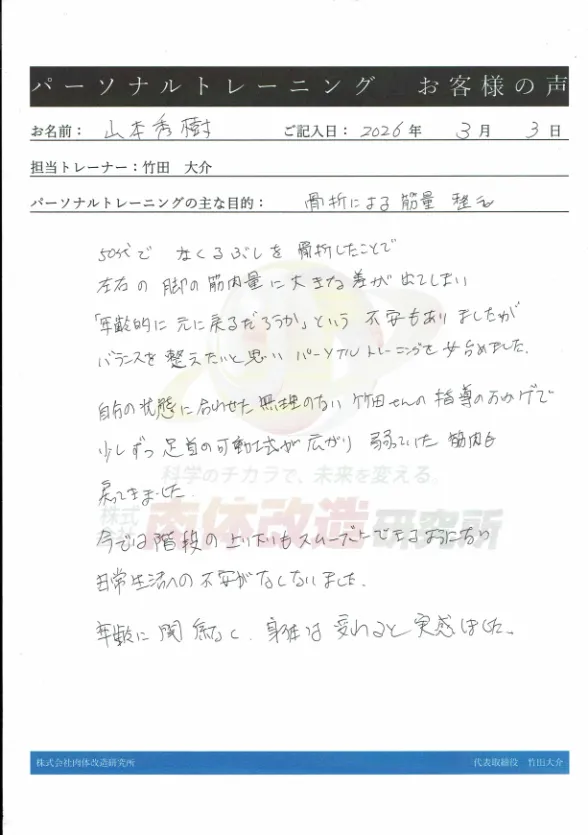 パーソナルトレーニング　お客様の声
お名前： 山本秀樹　ご記入日： 2026 年 3 月 3 日
担当トレーナー：竹田　大介
パーソナルトレーニングの主な目的： 骨折による筋量
50代で なくるぶしを 骨折したことで
左右の 脚の筋肉量に大きな差が出てしまい
「年齢的に元に戻るだろうか」という 不安もありましたが
バランスを整えたいと思い パーソナルトレーニングを 始めました。
自分の状態に合わせた無理のない竹田さんの指導のおかげで
少しずつ足首の可動域が広がり 弱っていた 筋肉も
戻ってきました。
科学のチカラで、未来を変える。
株式会社 肉体改造研究所
今では階段の上り下りもスムーズにできるようになり
日常生活への不安がなくなりました。
年齢に 関係なく、身体は変わると実感しました。
株式会社肉体改造研究所　代表取締役　竹田大介